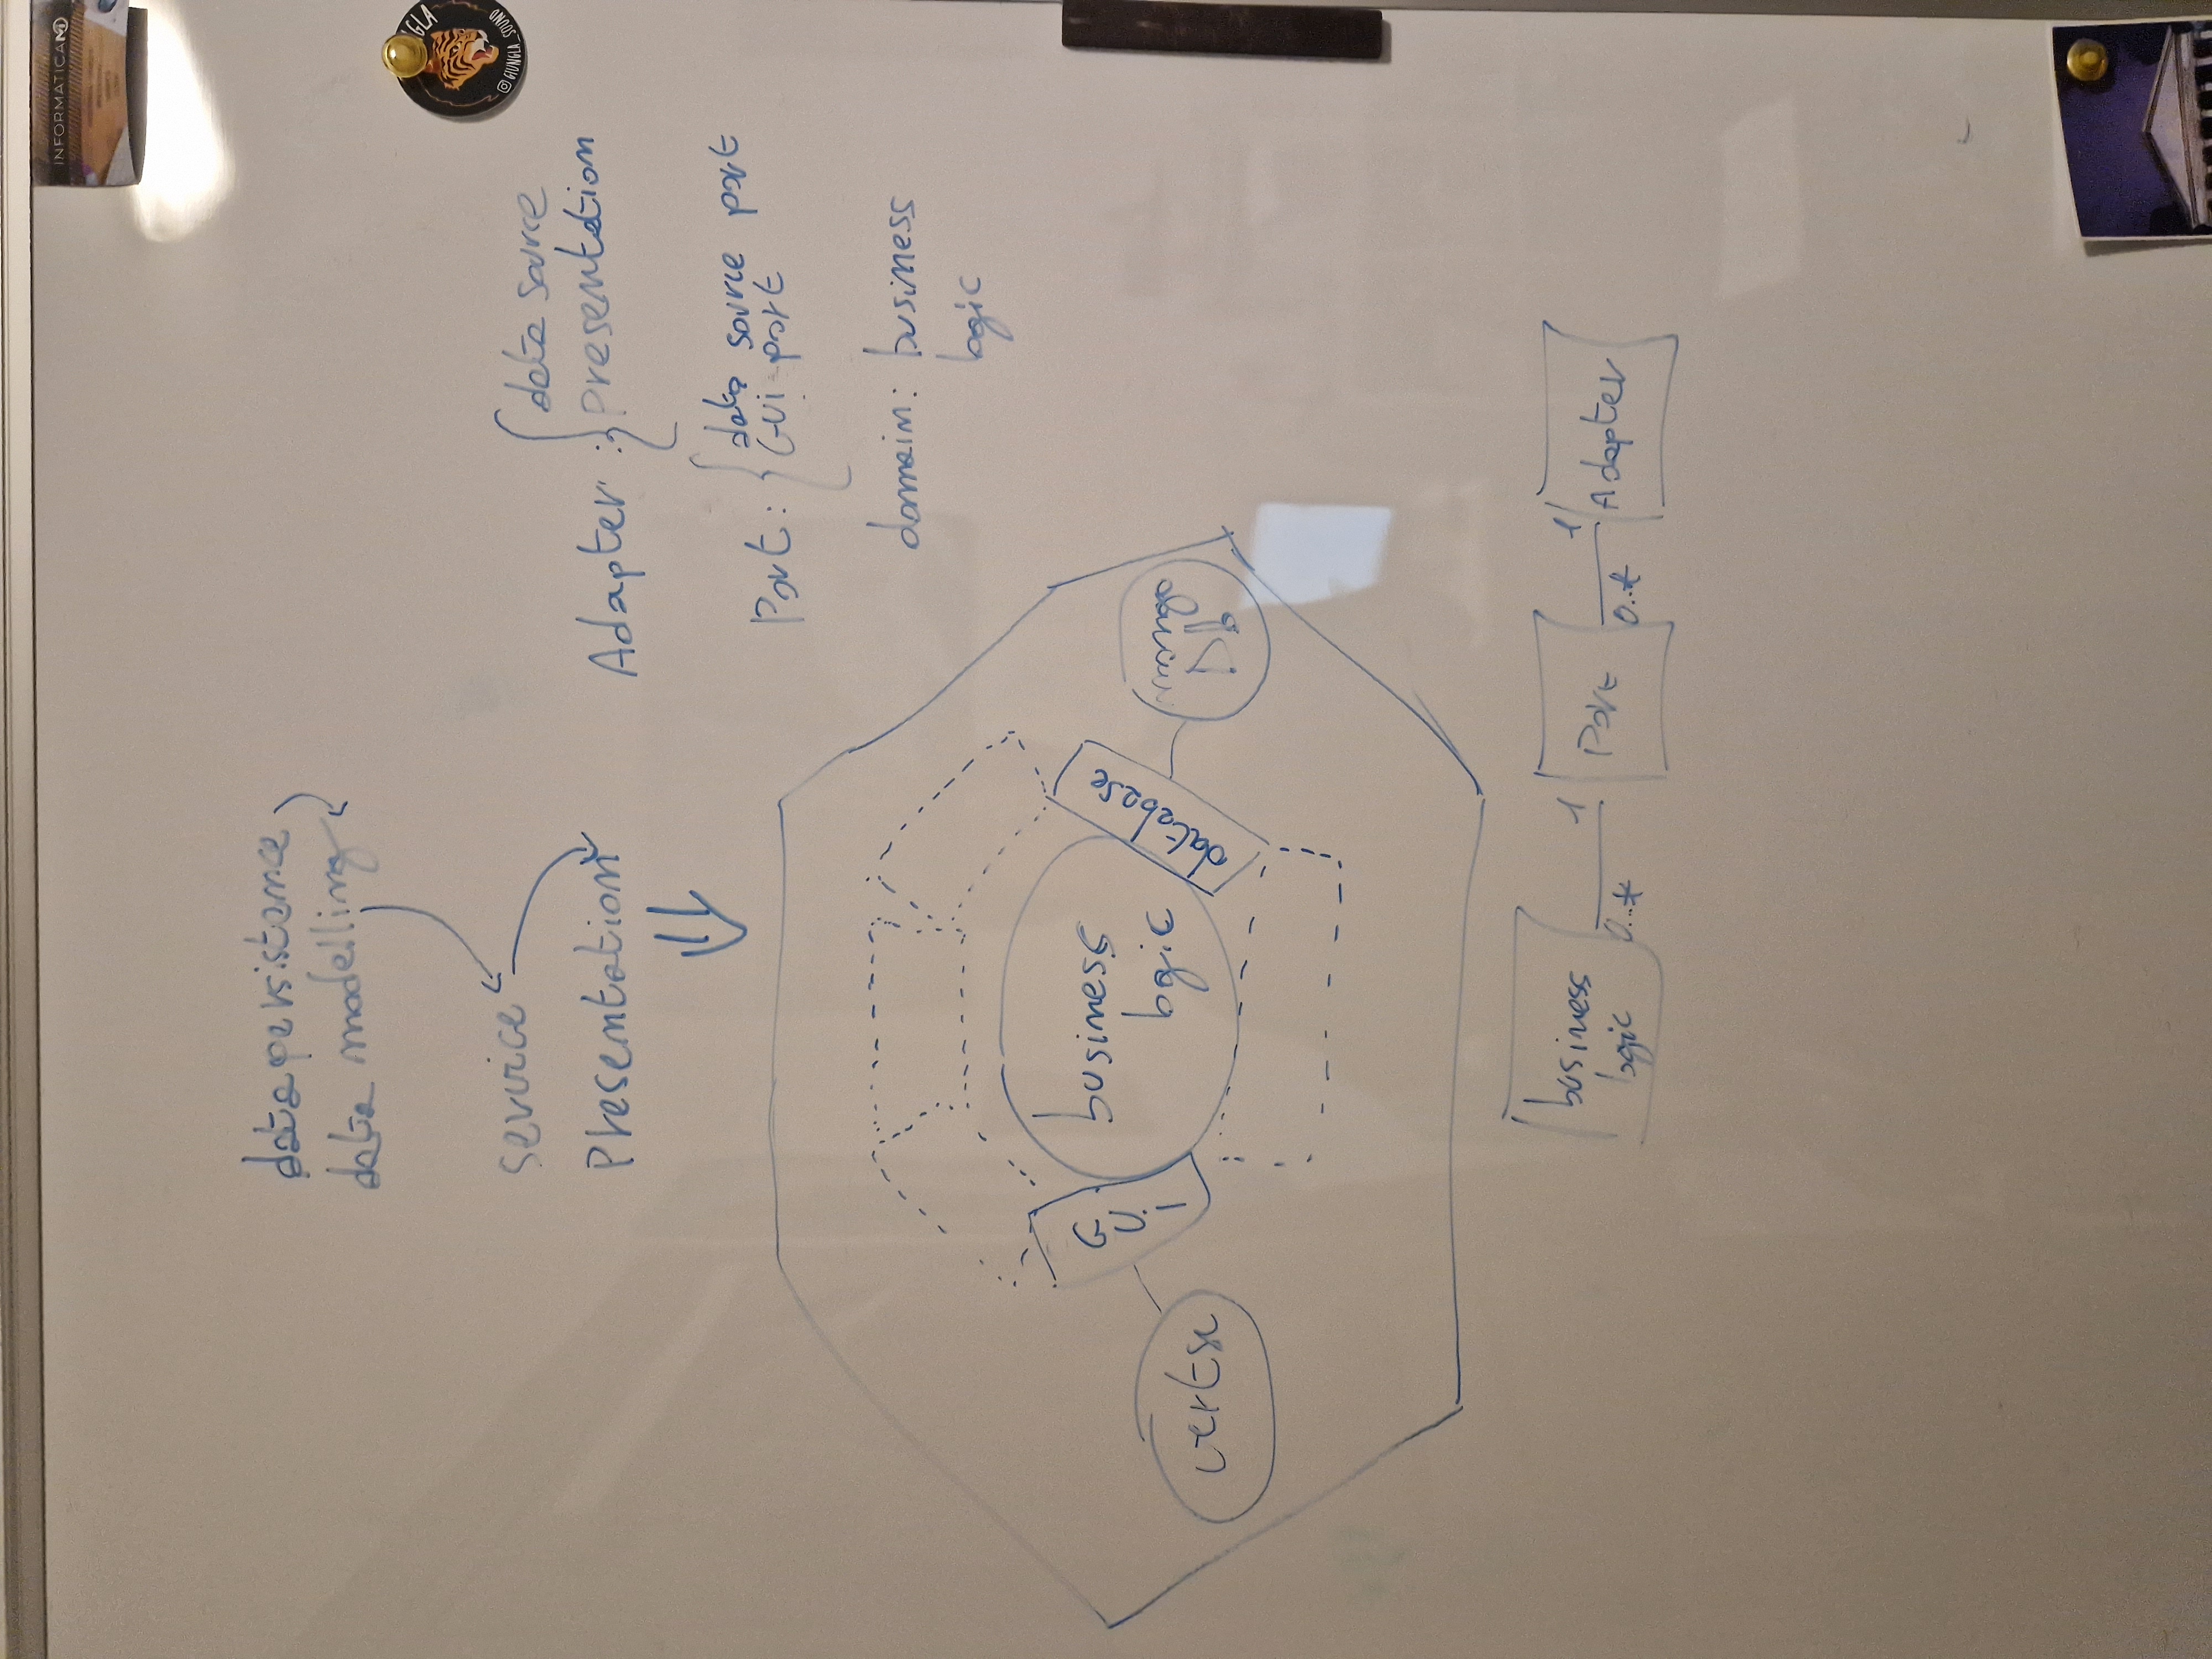 INFORMATICA
data persistence
data modelling
service
Presentation
@GIUNGLA_SOUND
Adapter : data source
presentation
Port: data source port
GUI port
domain: business
logic
GUI
business
logic
database
mongo
Db
business
logic
0..*
1
Port
0..*
1
Adapter